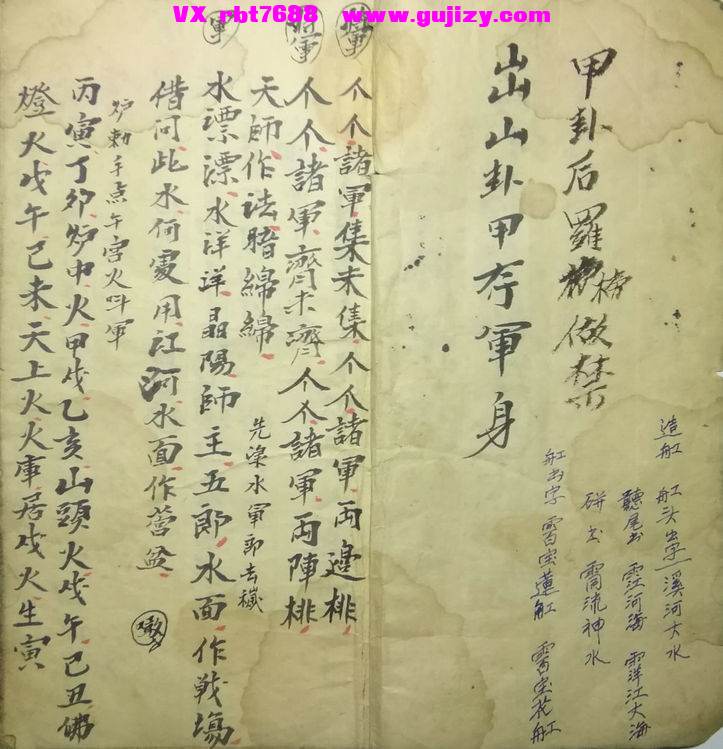 VX rbt7688 www.gujizy.com
甲卦后羅 做禁
出山卦甲存軍身
造舡 舡头出字溪河大水
聽尾出 霐河海 霔洋江大海
硑出 霌流神水
舡出字 宝蓮舡 宝花舡
个个諸軍集未集个个諸軍両邉排
个个諸軍齊未齊个个諸軍両陣排
天師作法暗綿綿
先深水軍即去穢
軍
水漂漂水洋洋晶陽師主五郎水面作戦塲
借问此水何處用江河水面作营盆
炉勅手点午宫火呌軍
丙寅丁卯炉中火甲戌乙亥山頭火戊午己丑佛
燈火戊午己未天上火火庫居戌火生寅